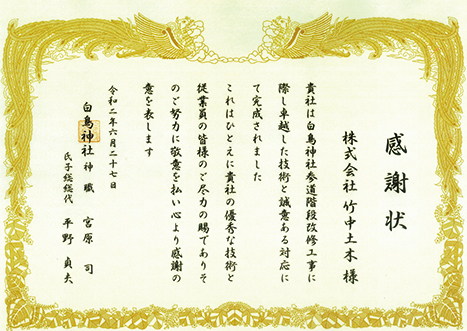 感謝状
株式会社 竹中土木 様
貴社は白鳥神社参道階段改修工事に
際し卓越した技術と誠意ある対応に
て完成されました
これはひとえに貴社の優秀な技術と
従業員の皆様のご尽力の賜でありそ
のご努力に敬意を払い心より感謝の
意を表します
令和二年六月二十七日
白鳥神社 神職 宮原 司
氏子総総代 平野 貞夫